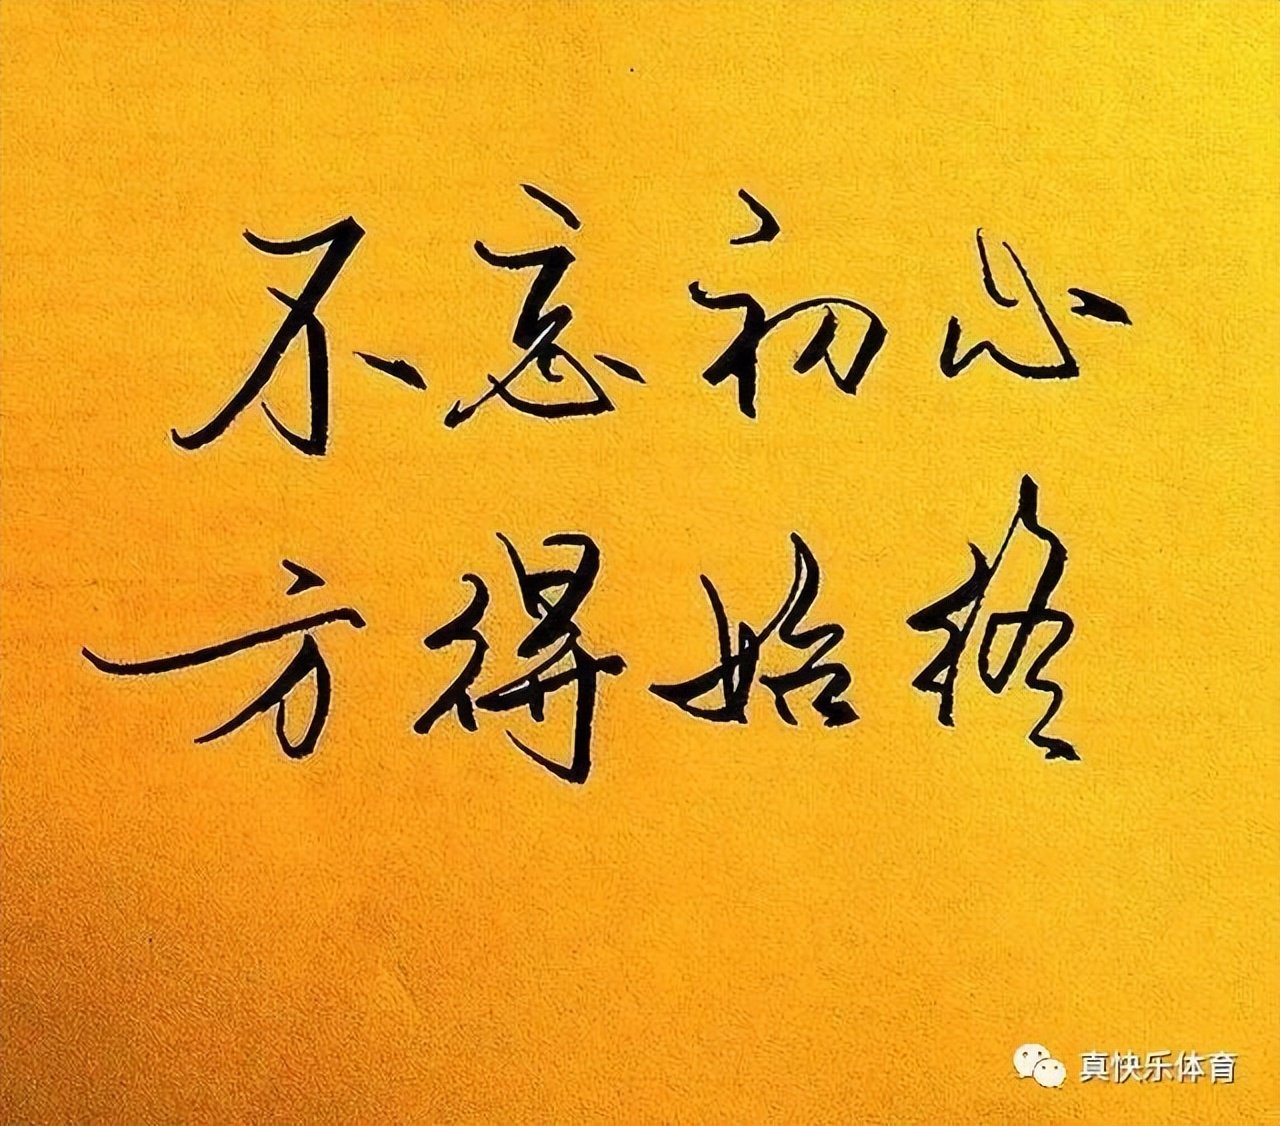 不忘初心
方得始终
真快乐体育